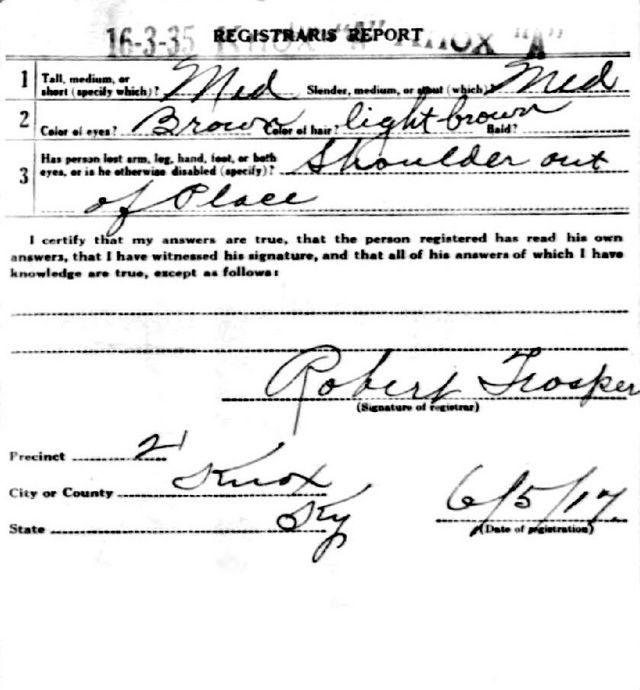 16-3-35 REGISTRAR'S REPORT Knox "A" Knox "A"
1 Tall, medium, or short (specify which)? Med Slender, medium, or stout (which)? Med
2 Color of eyes? Brown Color of hair? light brown Bald?
3 Has person lost arm, leg, hand, foot, or both eyes, or is he otherwise disabled (specify)? Shoulder out
of Place
I certify that my answers are true, that the person registered has read his own
answers, that I have witnessed his signature, and that all of his answers of which I have
knowledge are true, except as follows:
Robert Trosper
(Signature of registrar)
Precinct 2
City or County Knox
State Ky
6/5/17
(Date of registration)